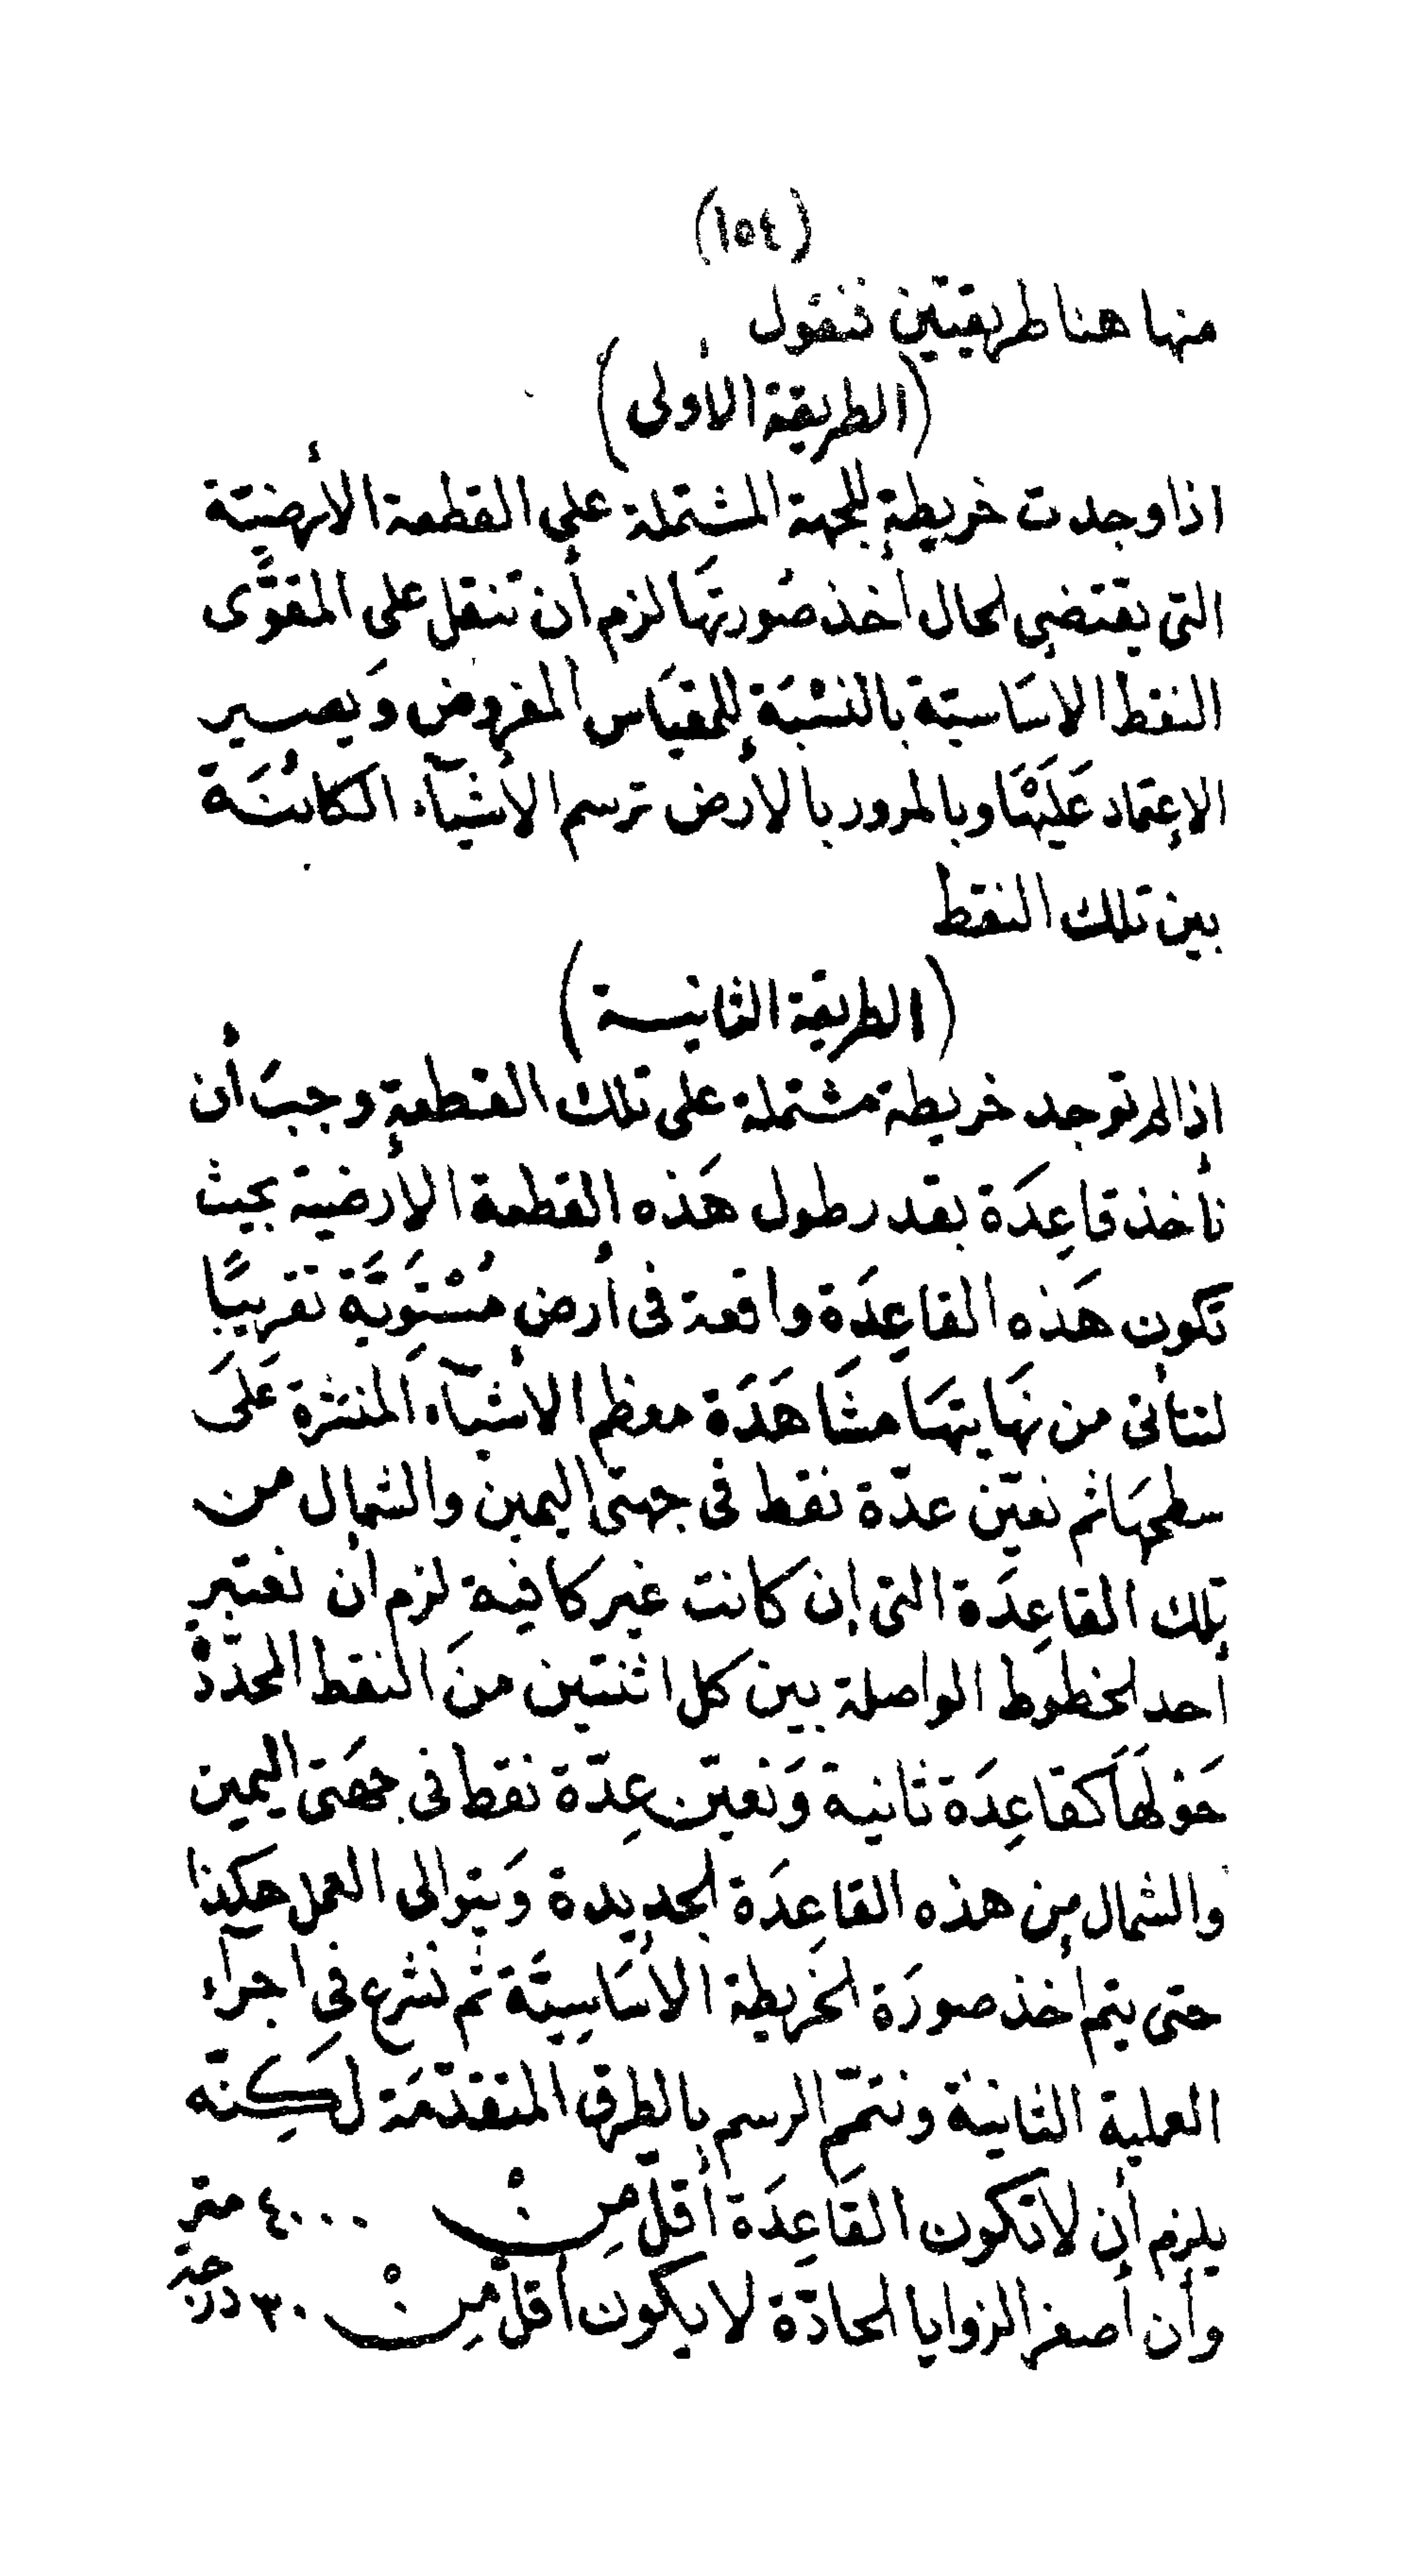 (١٥٤)
منها هنا طريقتين فنقول
(الطريقة الأولى)
اذا وجدت خريطة للجهة المشتملة على القطعة الأرضيّة
التى يقتضى الحال أخذ صُورتهَا لزم أن تنقل على المقوَّى
النقط الاسَاسيّة بالنسْبَة للمقيَاس المفروض وَيصير
الإعتماد عَلَيْهَا وبالمرور بالأرض ترسم الأشيآء الكائنَة
بين تلك النقط
(الطريقة الثانية)
اذا لم توجد خريطة مشتملة على تلك القطعةِ وجبَ أن
نأخذ قاعِدَة بقدر طول هَذه القطعة الأرضية بحيث
تكون هَذه القاعِدَة واقعة فى أرضٍ مُسْتَوِيَّة تقريبًا
لتتأتى من نهَايتهَا مشَاهَدَة معظم الأشيآء المنتثرة عَلَى
سطحهَا ثم نعيّن عدّة نقط فى جهتى اليمين والشمال من
تلك القاعِدَة التى إن كانت غير كافيةٍ لزم أن نعتبر
أحد الخطوط الواصلة بين كل اثنتين منَ النقط المحدّدْ
حَوْلَهَا كقاعِدَة ثانية وَنعيّن عِدّة نقط فى جهَتى اليمين
والشمال مِن هذه القاعِدَة الجديدة وَيتوالى العمل هكذا
حتى يتم أخذ صورَة الخَريطة الأسَاسِيَّة ثم نشرع فِى اجرآء
العملية الثانيَة ونتمّم الرسم بالطرق المتقدّمَة لَكِنّه
يلزم أن لا تكون القَاعِدَة أقلّ مِنْ ٤٠٠٠ متر
وأن أصغر الزوايا الحادّة لا يكون أقلّ مِنْ ٣٠ درجة